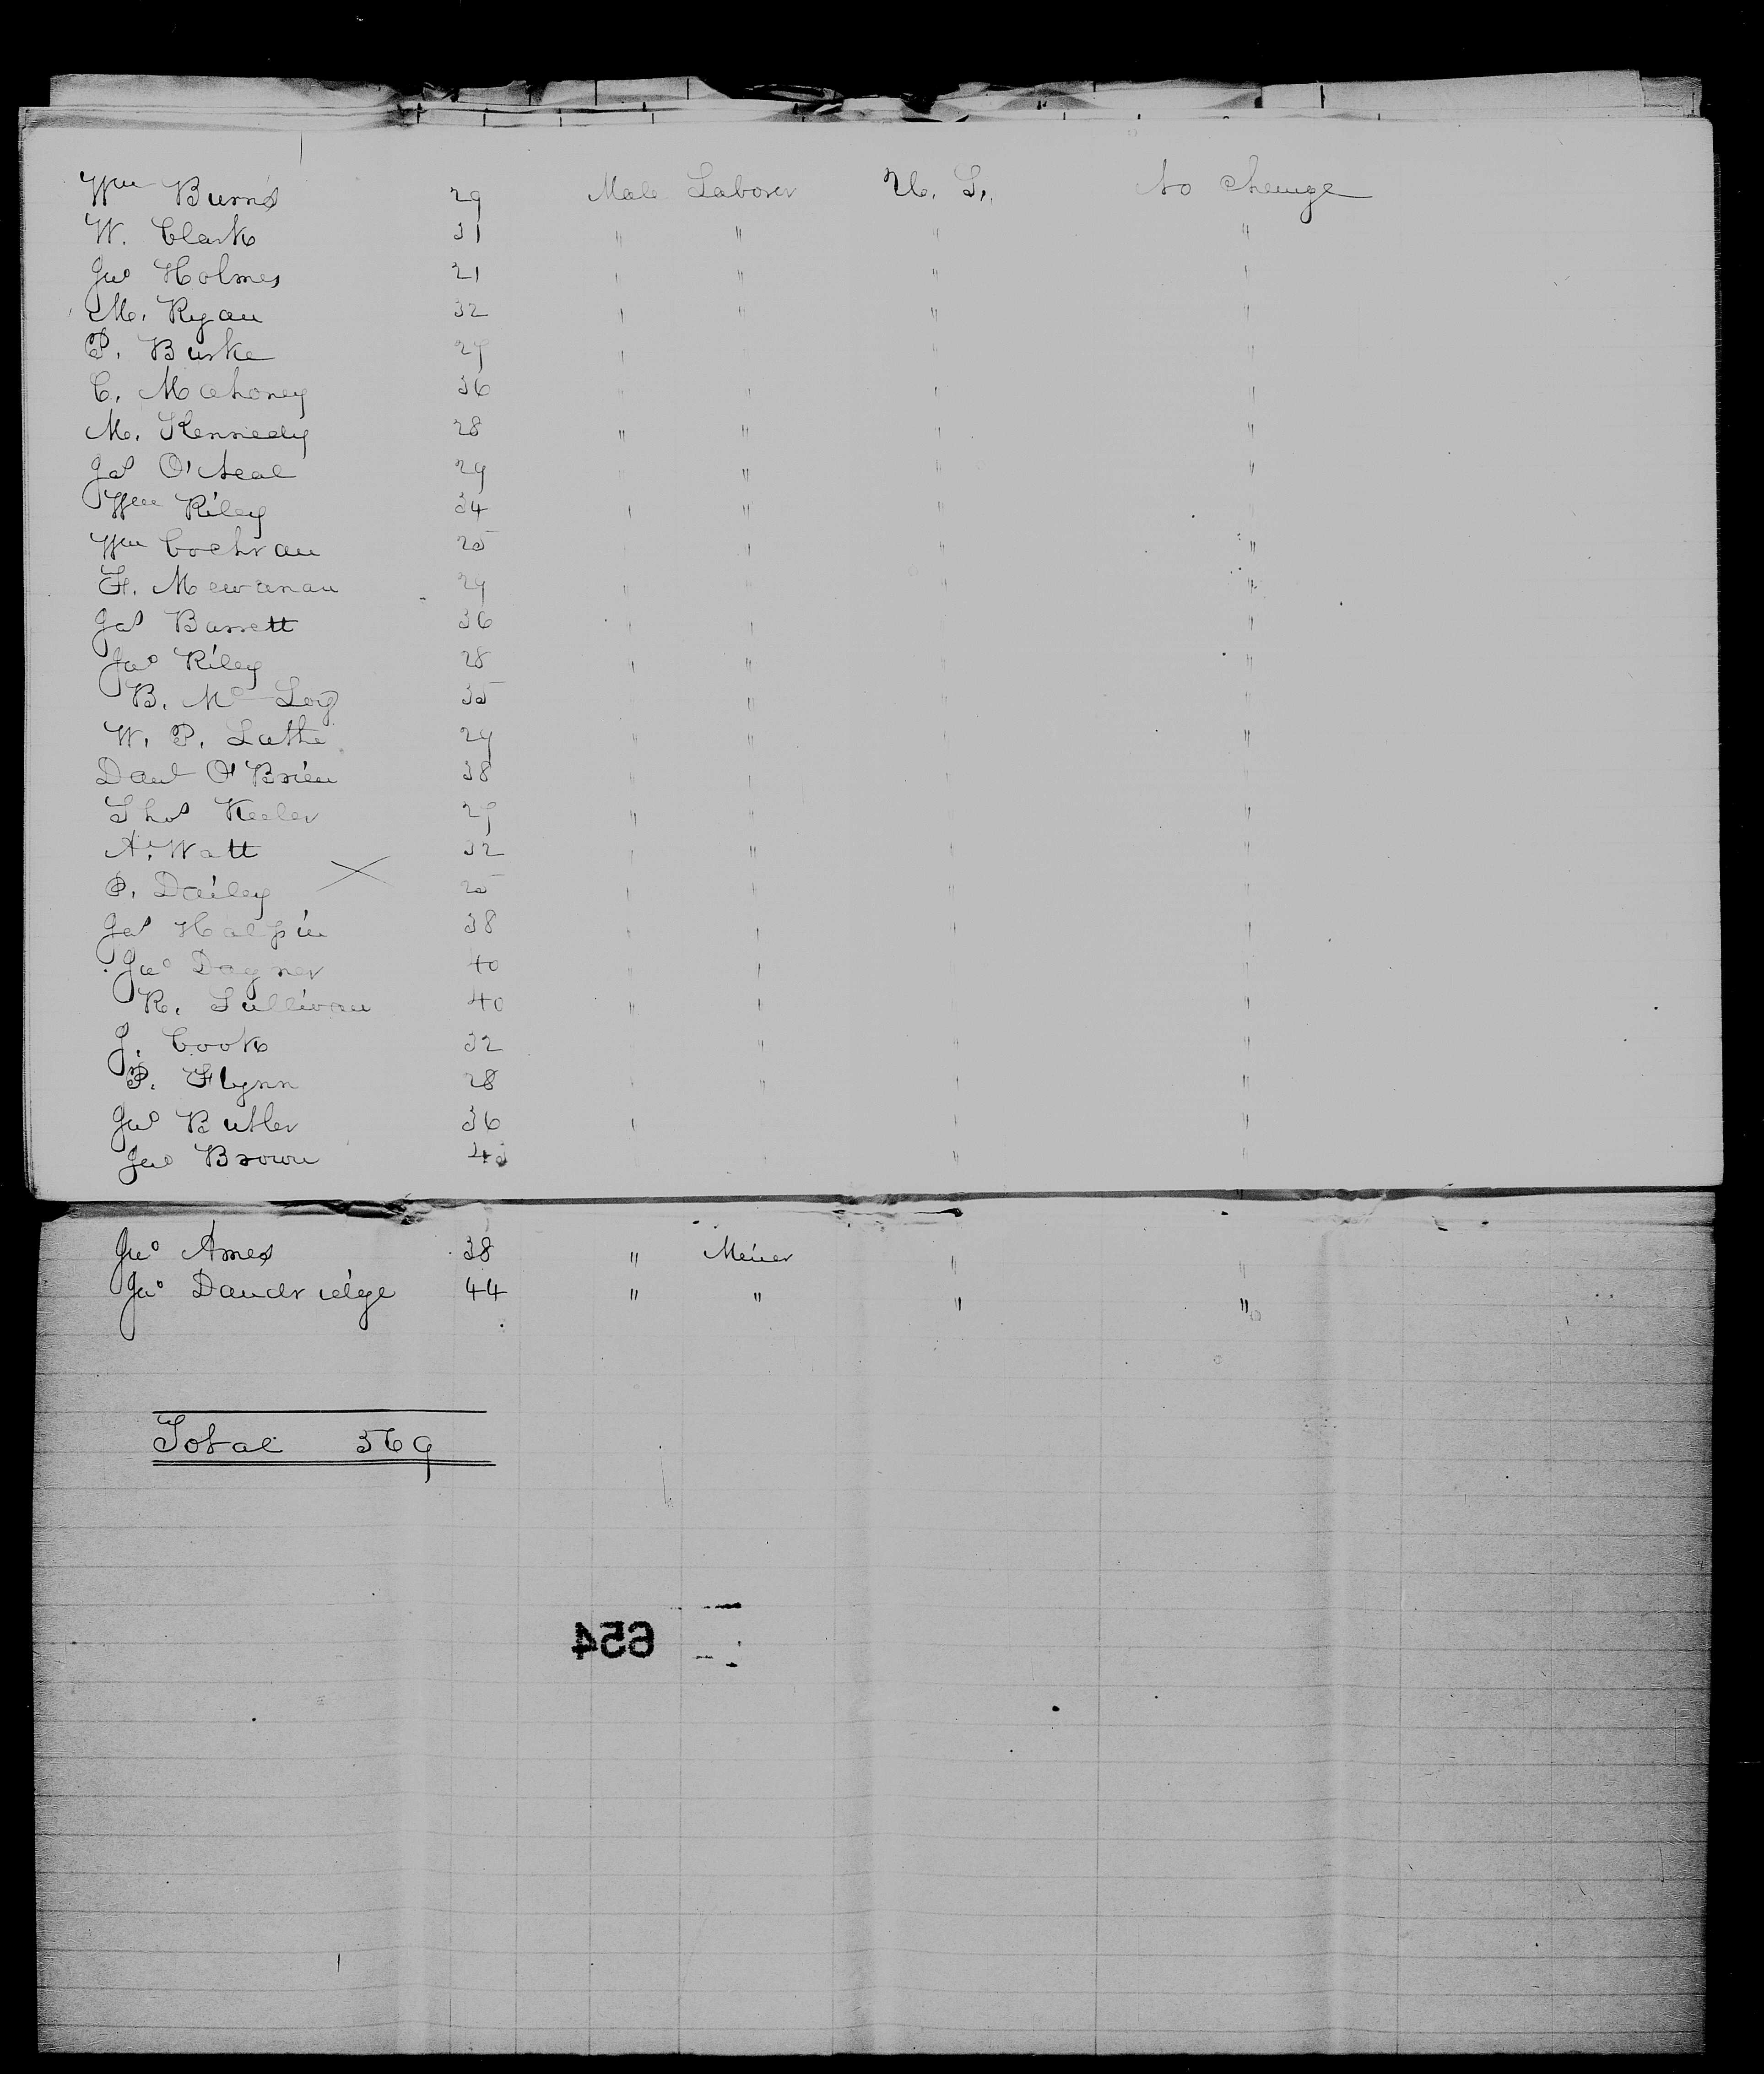 Wm Burns 29 Male Laborer U. S. No Change
W. Clark 31 " " " "
Jno Holmes 21 " " " "
M. Ryan 32 " " " "
P. Burke 29 " " "
C. Mahoney 36 " " " "
M. Kennedy 28 " " " "
Jas O'Neal 29 " " " "
Wm Riley 34 " " "
Wm Cochran 25 " " "
F. 29 " " "
Jas Barrett 36 " " "
Jno Riley 28 " " " "
B. Mc Loy 35 " " "
W. P. Lathe 29 " " " "
Danl O'Brien 38 " "
Thos Keeler 29 " " "
A. Watt 32 " " " "
P. Dailey 25 " " " "
Jas Halpin 38 " " " "
Jno Dagner 40 " " "
R. Sullivan 40 " " "
J. Cook 32 " " "
P. Flynn 28 " " "
Jno Butler 36 " " "
Jno Brown " "
Jno Ames 38 " Meiner " "
Jno Dandridge 44 " " " "
Total 369
654